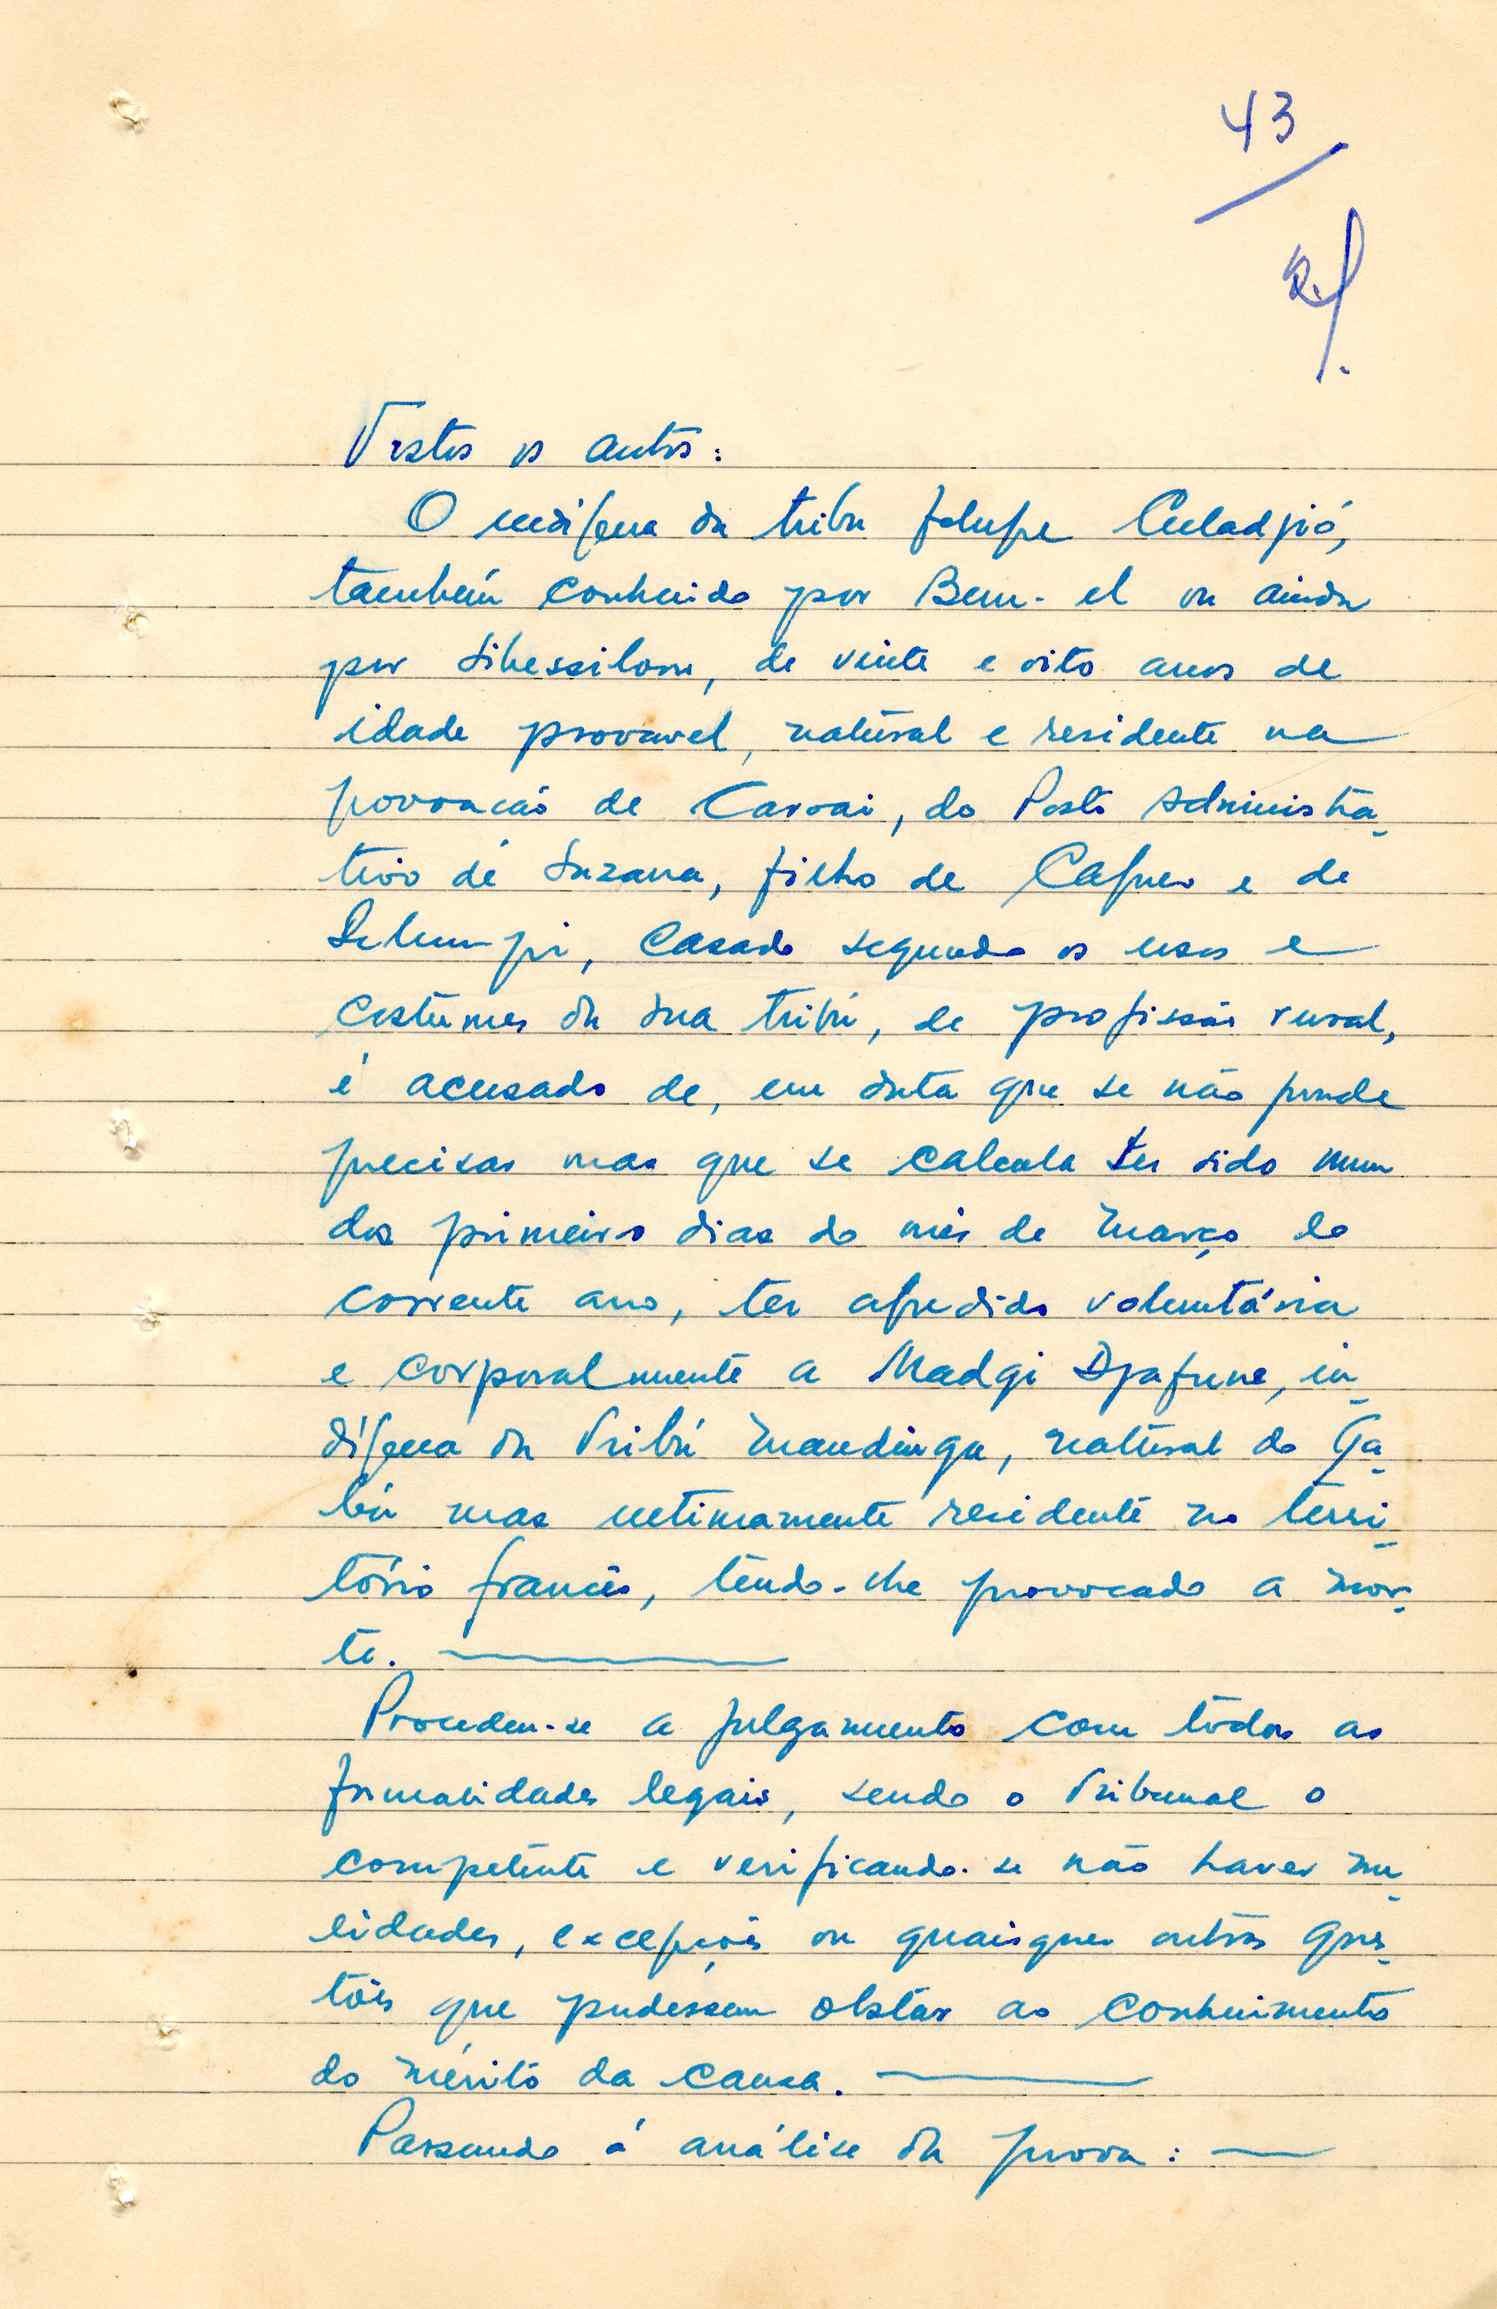 43
Vistos os autos:
O indígena da tribu felupe Culadjió,
também conhecido por Bem-el ou ainda
por Sihessilom, de vinte e oito anos de
idade provavel, natural e residente na
povoação de Caroai, do Posto Administra-
tivo de Suzana, filho de e de
casado segundo os usos e
costumes da sua tribú, de profissão rural,
é acusado de, em data que se não poude
precisar mas que se calcula ter sido num
dos primeiros dias do mês de Março do
corrente ano, ter agredido voluntária
e corporalmente a Madgi Djafune, in-
dígena da Tribú Mandinga, natural do Ga-
bú mas ultimamente residente no terri-
tório francês, tendo-lhe provocado a mor-
te.
Procedeu-se a julgamento com todas as
formalidades legais, sendo o Tribunal o
competente e verificando-se não haver nu-
lidades, excepções ou quaisquer outras ques-
tões que pudessem obstar ao conhecimento
do mérito da causa.
Passando á análise da prova: